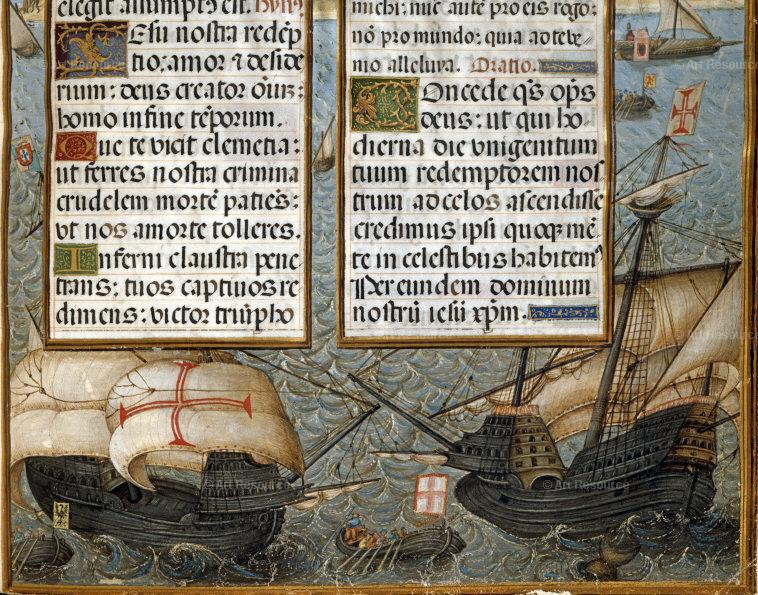 elegit assumptꝰ est. hymꝰ
Iesu nostra redēp
tio; amor ⁊ deside
rium: deus creator oīuȝ:
homo in fine tēporum.
Que te vicit clemētia:
ut ferres nostra crimina
crudelem mortē patiēs:
vt nos a morte tolleres.
Inferni claustra pene
trans: tuos captiuos re
dimens: victor triūpho
michi: nūc autē pro eis rogo:
nō pro mundo: quia ad te ve
nio alleluya. Oratio.
Concede q̄s op̄s
deus: ut qui ho
dierna die vnigenitum
tuum redemptorem nos
trum ad celos ascendisse
credimus ipsi quoqꝫ mē
te in celestibus habitemꝰ
Per eundem dominum
nostrū iesū xp̄m.
© Art Resource
© Art Resource
© Art Resource
© Art Resource